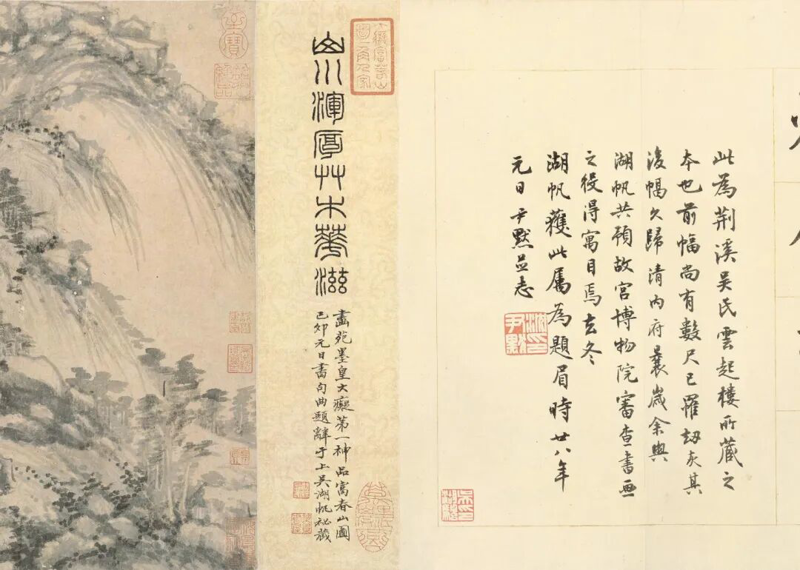 此為荊溪吳氏雲起樓所藏之
本也前幅尚有數尺已罹劫灰其
後幅久歸清內府曩歲余與
湖帆共預故宮博物院審查書画
之役得寓目焉去冬
湖帆獲此屬為題眉時廿八年
元日尹默並志
沈尹默印
山川渾厚艸木華滋
畫苑墨皇大癡第一神品富春山圖
己卯元日書句曲題辭于上吳湖帆祕藏